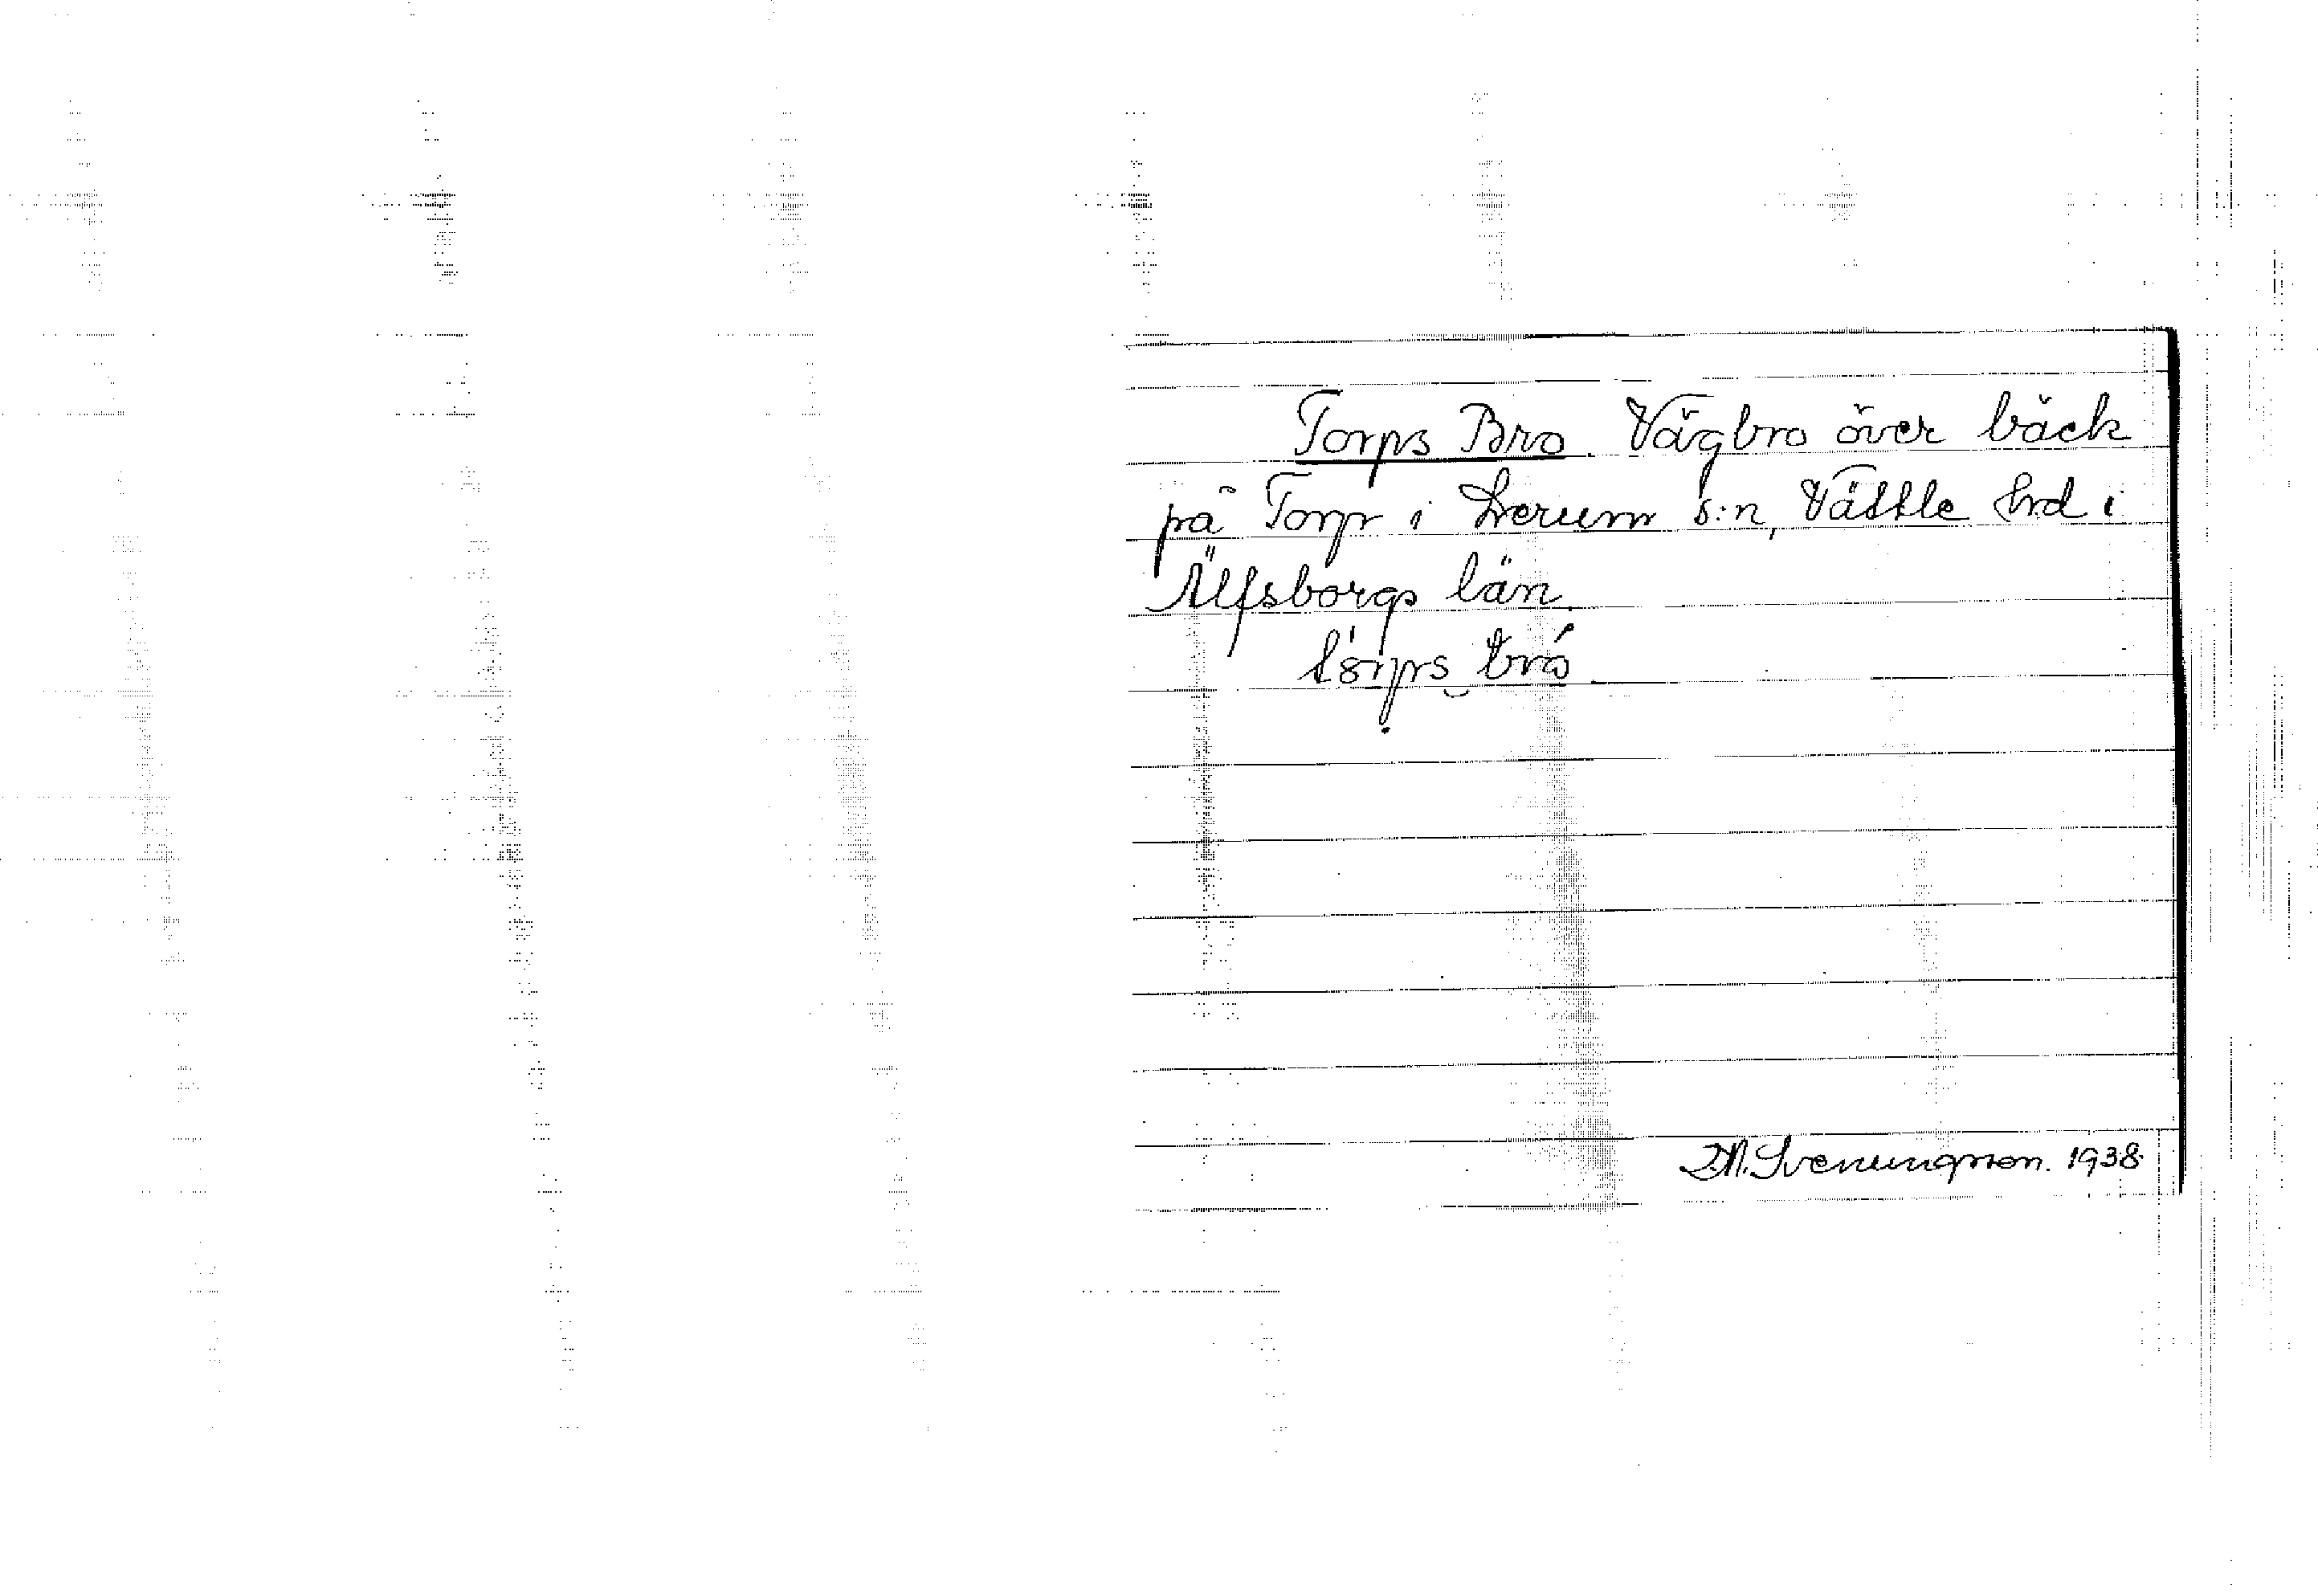 Torps Bro. Vägbro över bäck
på Torp i Lerum s:n, Vättle hrd i
Älfsborgs län.
D.M. Svenungsson. 1938